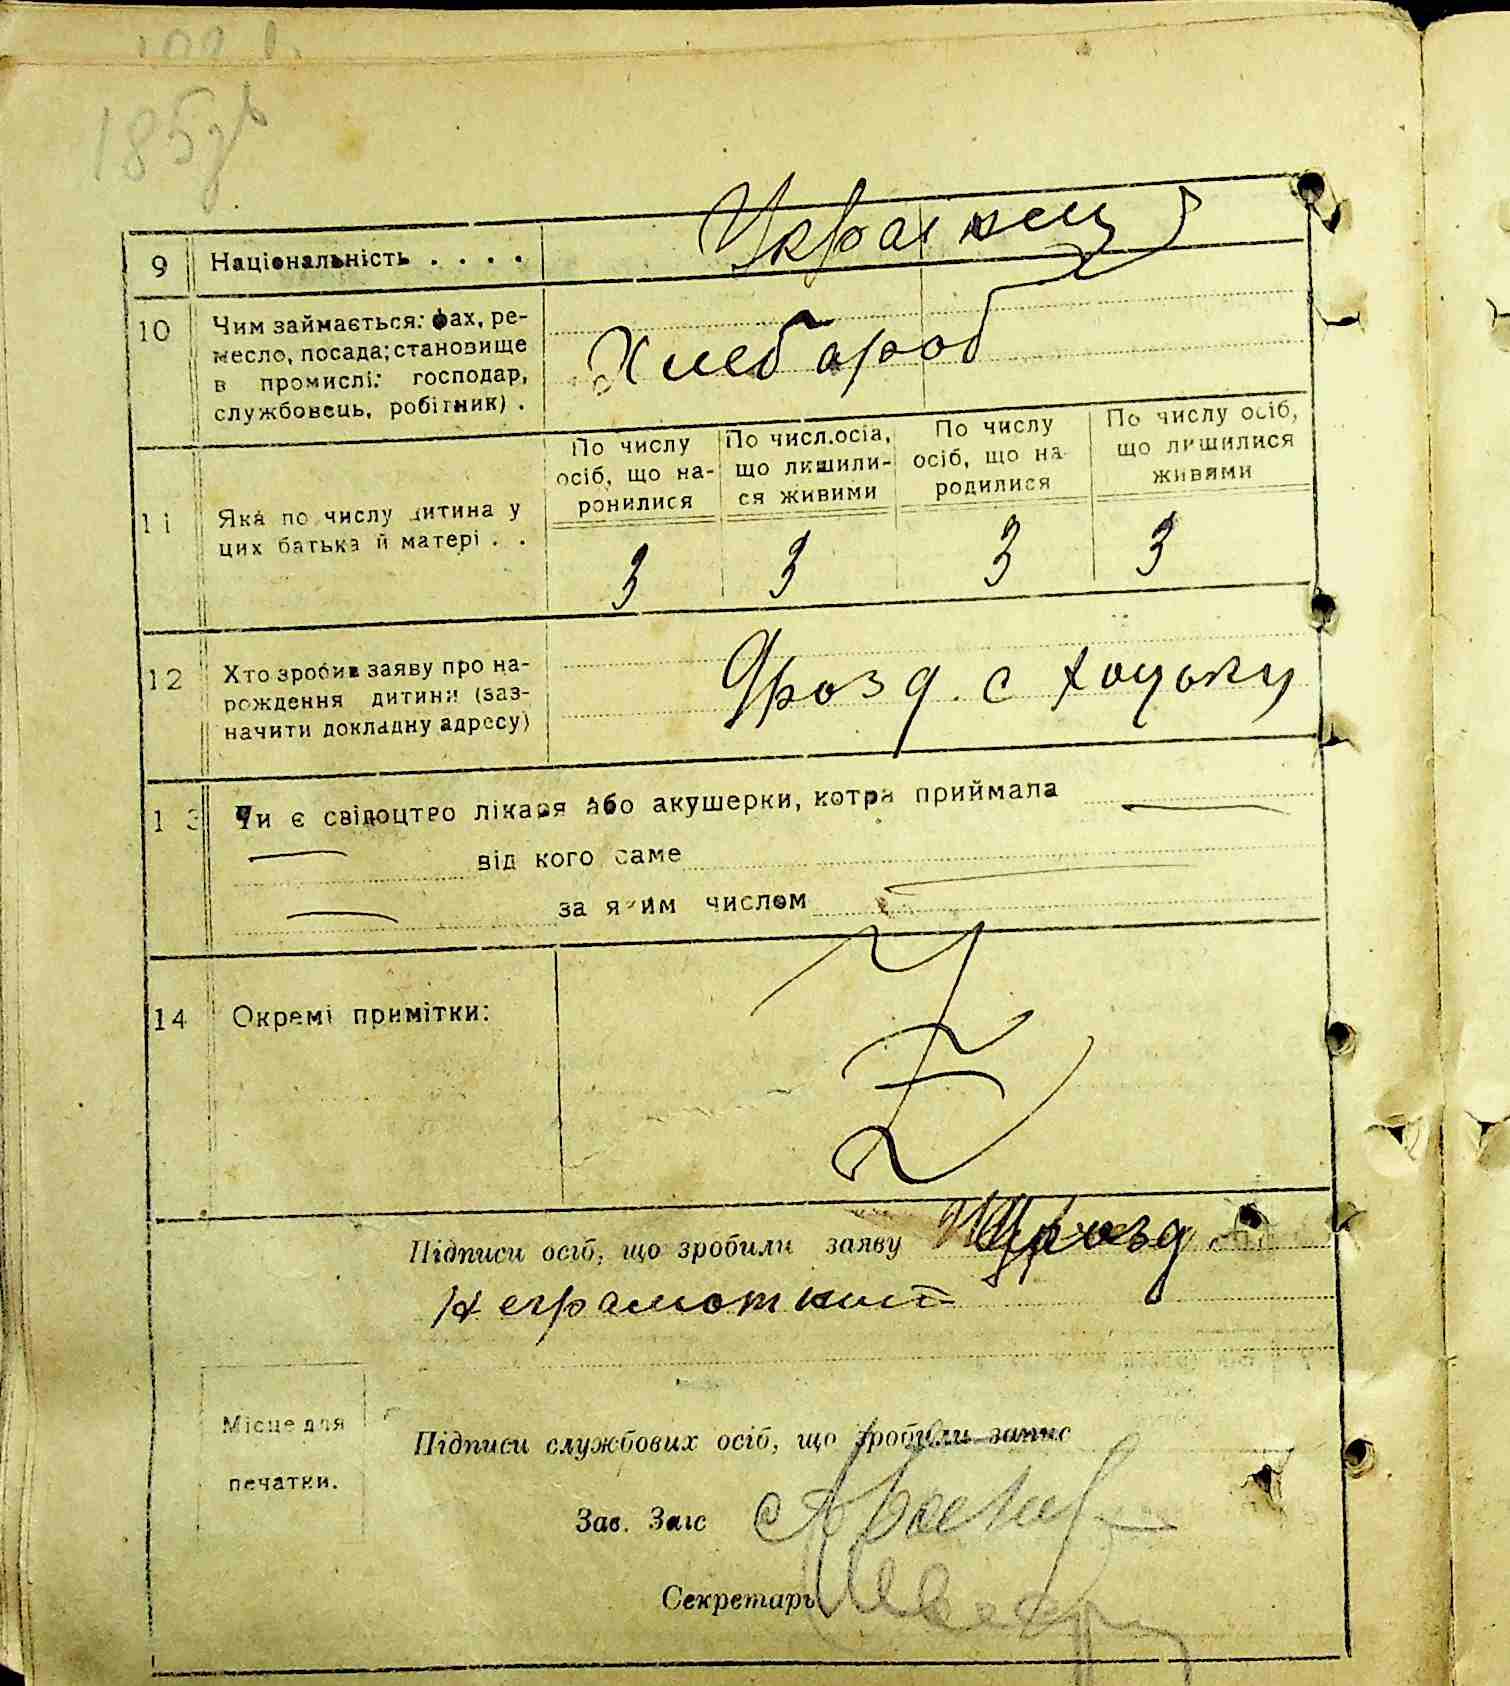 185
9 Національність . . . .
Украінец
10 Чим займається: фах, ре-
месло, посада; становище
в промислі: господар,
службовець, робітник) .
Хлебороб
По числу осіб, що на-ронилися
По числ.осіа, що лишили-ся живими
По числу осіб, що на родилися
По числу осіб, що лишилися живями
11 Яка по числу дитина у
цих батька й матері . .
3 3 3 3
12 Хто зробив заяву про на-
рождення дитини (заз-
начити докладну адресу)
Дрозд. с Хоцьки
13 Чи є свідоцтво лікаря або акушерки, котра приймала
від кого саме
за яким числом
14 Окремі примітки:
Підписи осіб, що зробили заяву Дрозд.
Неграмотний
Місце для
печатки.
Підписи службових осіб, що зробили запис
Зав. Загс
Секретарь